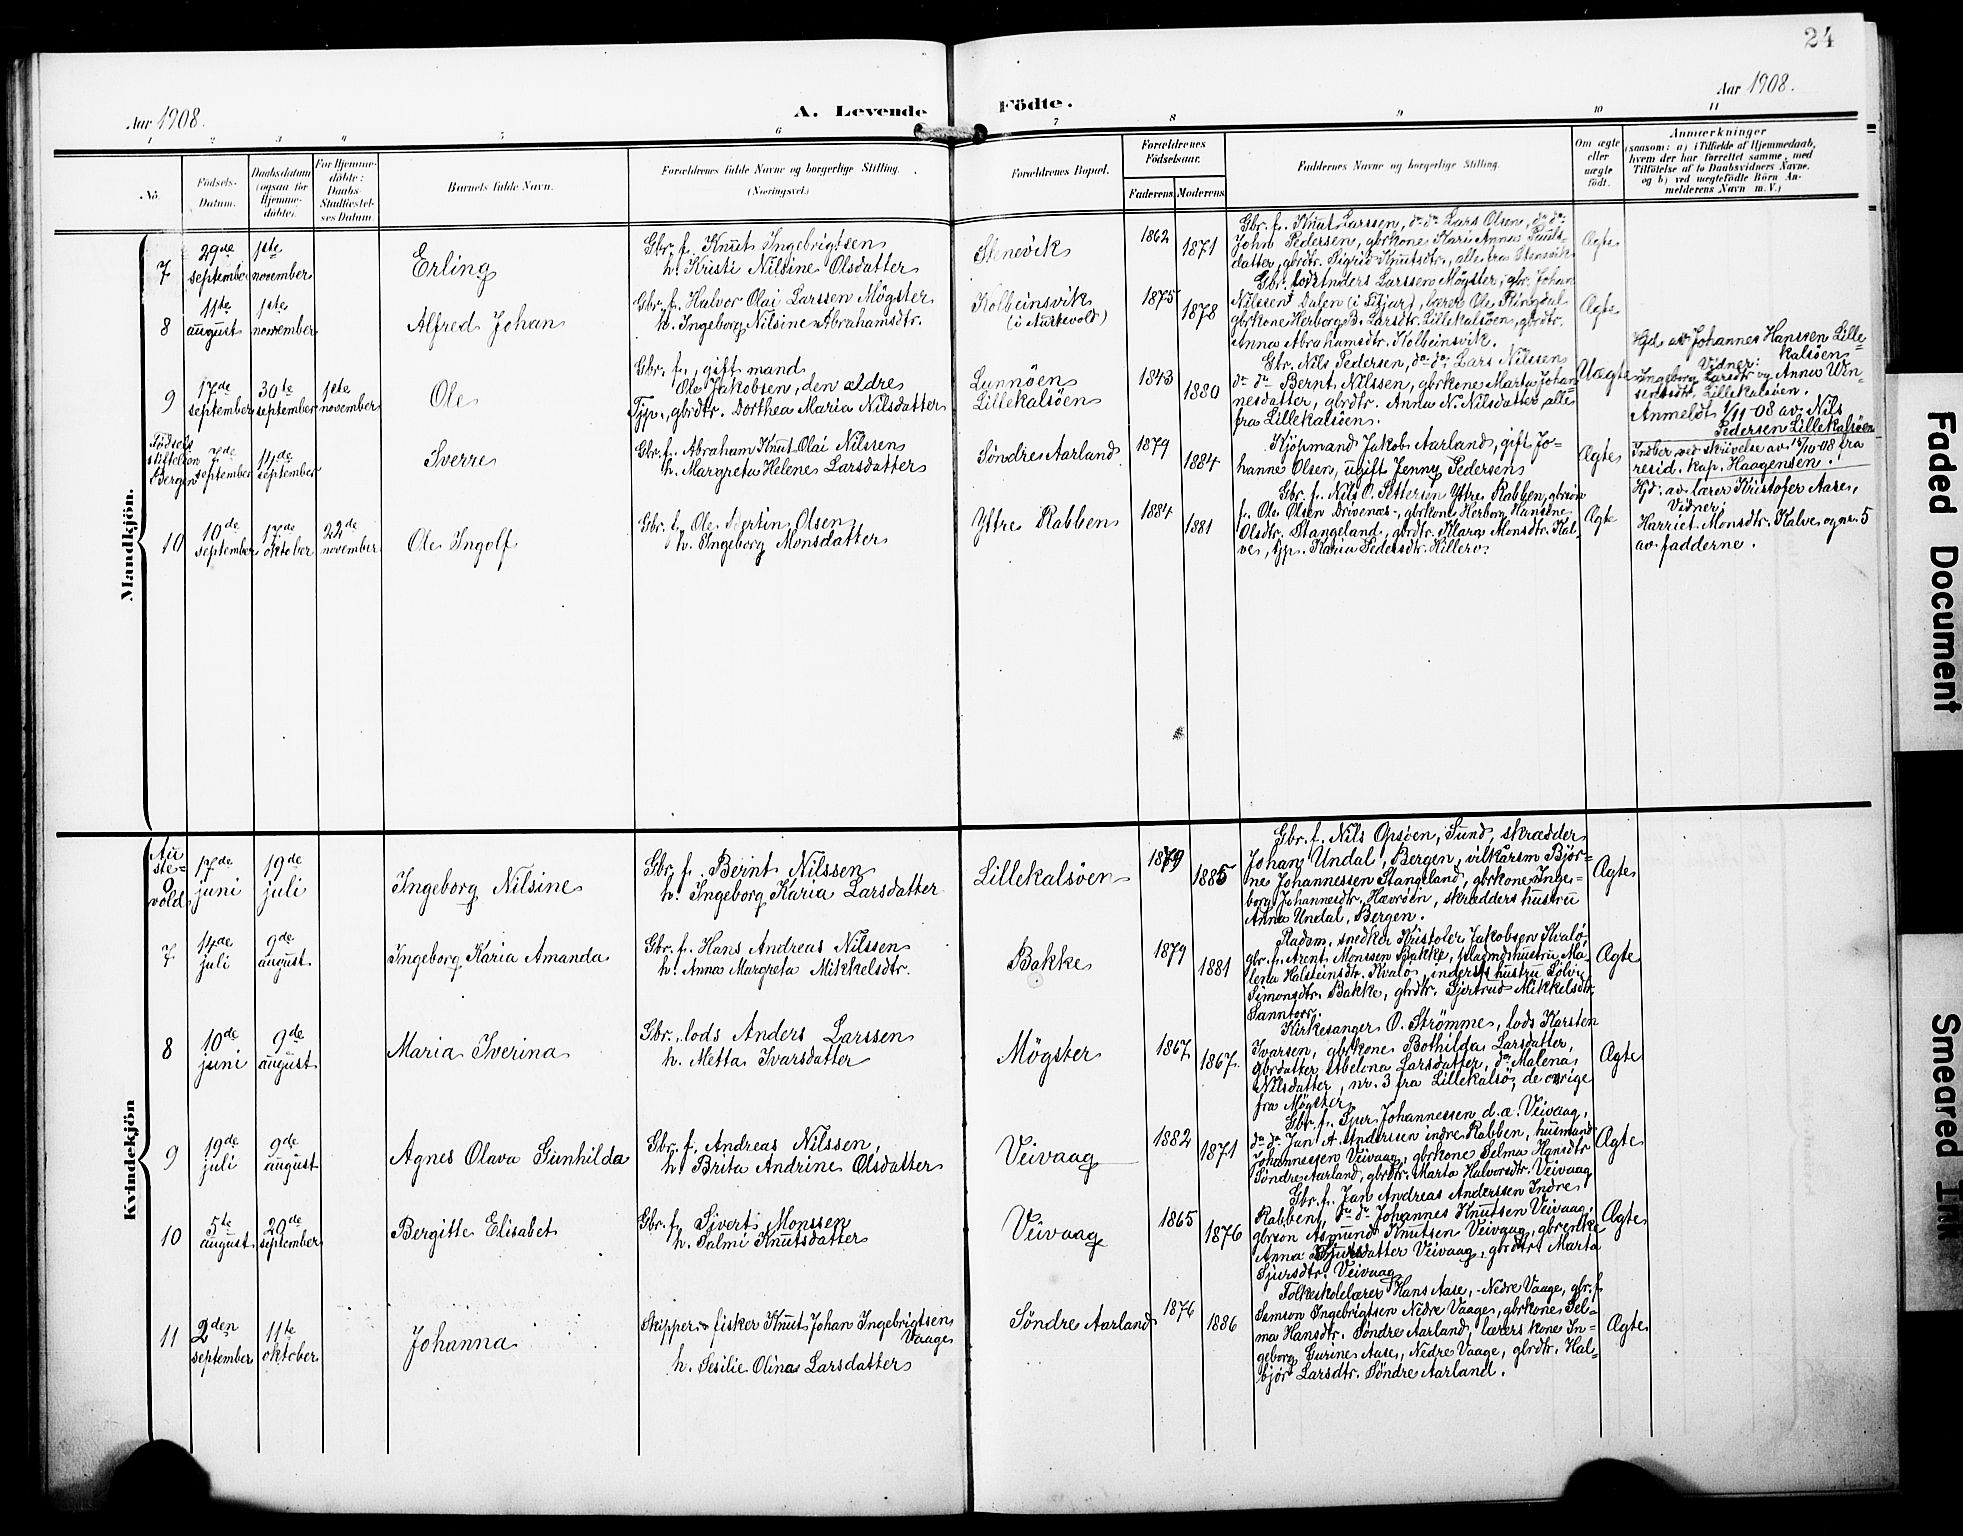 24
Aar 1908.
A. Levende Födte.
Aar 1908.
1 2 3 4 5 6 7 8 9 10 11
No.
Födsels-
Datum.
Daabsdatum
(ogsaa for
Hjemme-
döbte).
For Hjemme-
döbte:
Daabs-
Stadfæstel-
ses Datum.
Barnets fulde Navn.
Forældrenes fulde Navne og borgerlige Stilling.
(Næringsvei.)
Forældrenes Bopæl.
Forældrenes
Födselsaar.
Faderens Moderens
Faddernes Navne og borgerlige Stilling.
Om ægte
eller
uægte
født.
Anmærkninger
(saasom: a) i Tilfælde af Hjemmedaab,
hvem der har forrettet samme, med
Tilföielse af to Daabsvidners Navne,
og b) ved uægtefödte Börn An-
melderens Navn m. V.)
Mandkjön.
7
29de
september
1ste
november
Erling
Gbr. f. Knut Ingebrigtsen
h. Kristi Nilsine Olsdatter
Stenevik
1862
1871
Gbr. f. Knut Larssen, do do Lars Olsen, do do
John Pedersen, gbrkone Kari Anna Pauls-
datter, gbrdtr. Sigrid Knutsdtr., alle fra Stenevik
Ægte
8
11te
august
1ste
november
Alfred Johan
Gbr. f. Halvor Olai Larssen Møgster
h. Ingeborg Nilsine Abrahamsdtr.
Kolbeinsvik
(i Aurkevold)
1875
1878
Gbr. lods Anders Larssen Møgster, gbr. Johan
Nilssen Dalen (i Fitjar), lærer Ole Ringdal
gbrkone Herborg B. Larsdtr. Lillekalsøen, gbrdtr.
Anna Abrahamsdtr. Kolbeinsvik.
Ægte
9
17de
september
30te
september
1ste
november
Ole
Gbr. f., gift mand
Ole Jakobsen, den ældre
Tjp., gbrdtr. Dorthea Maria Nilsdatter
Lunnøen
Lillekalsøen
1843
1880
Gbr. Nils Pedersen, do do, Lars Nilssen
do do Bernt Nilssen, gbrkone Marta Johan-
nesdatter, gbrdtr. Anna N. Nilsdatter, alle
fra Lillekalsøen.
Uægte
Hjd. av Johannes Hanssen Lille-
kalsøen
Vidner:
Ingeborg Larsdtr og Anna Win-
sentsdtr, Lillekalsøen.
Anmeldt 1/11-08 av Nils
Pedersen Lillekalsøen
Fødsels
stiftelsen
Bergen
7de
september
14de
september
Sverre
Gbr. f. Abraham Knut Olai Nilssen
h. Margreta Helene Larsdatter
Søndre Aarland
1879
1884
Kjøpmand Jakob Aarland, gift Jo-
hanne Olsen, ugift Jenny Pedersen
Ægte
Indber. ved skrivelse av 16/10-08 fra
resid. kap. Haagensen.
10
10de
september
17de
oktober
22de
november
Ole Ingolf
Gbr. f. Ole Bertin Olsen
h. Ingeborg Monsdatter
Yttre Rabben
1884
1881
Gbr. f. Nils O. Pettersen Yttre Rabben, gbrsøn
f. Ole Olsen Drivenes, gbrkone Herborg Hansine
Olsdtr. Stangeland, gbrdtr. Klara Monsdtr. Kal-
ve, tjp. Karia Pedersdtr. Hillerø.
Ægte
Hjd. av lærer Kristofer Aase,
Vidner,
Harriet Monsdtr. Kalve og nr. 5
av fadderne.
Kvindekjön
Au
ste-
vold
17de
juni
19de
juli
Ingeborg Nilsine
Gbr. f. Bernt Nilssen
h. Ingeborg Karia Larsdatter
Lillekalsøen
1879
1885
Gbr. f. Nils Opsøen, Sund, skrædder
Johan Undal, Bergen, vilkårsm Bjør-
ne Johannessen Stangeland, gbrkone Inge-
borg Johannesdtr. Hævrøen, skrædders hustru
Anna Undal, Bergen.
Ægte
7
14de
juli
9de
august
Ingeborg Karia Amanda
Gbr. f. Hans Andreas Nilssen
h. Anna Margreta Mikkelsdtr.
Bakke
1879
1881
snedker Kristofer Jakobsen Kvalø,
gbr. f. Arent Monssen Bakke, hustru Ma-
lena Halsteinsdtr. Kvalø, inderst hustru Sølvi
Simonsdtr. Bakke, gbrdtr. Gjertrud Mikkelsdtr.
Ægte
8
10de
juni
9de
august
Maria Iverina
Gbr., lods Anders Larssen
h. Metta Ivarsdatter
Møgster
1867
1867.
Kirkesanger O. Strømme, lods Karsten
Ivarsen, gbrkone Bothilda Larsdatter,
gbrdatter Abelona Larsdatter, do Malena
Nilsdatter, nr. 3 fra Lillekalsø, de øvrige
fra Møgster
Ægte
9
19de
juli
9de
august
Agnes Olava Gunhilda
Gbr. f. Andreas Nilssen,
h. Brita Andrine Olsdatter
Veivaag
1882
1871
Gbr. f. Sjur Johannessen d.æ. Veivaag,
do do Jan A. Andersen indre Rabben, husmand
Johannessen Veivaag, gbrkone Selma Hansdtr
Søndre Aarland, gbrdtr. Marta Halvorsdtr. Veivaag
Ægte
10
5te
august
20de
september
Bergitte Elisabet
Gbr. f. Sjvert Monssen
h. Salmi Knutsdatter
Veivaag
1865
1876
Gbr. f. Jan Andreas Anderssen Indre
Rabben, do do Johannes Knutsen Veivaag,
gbrsøn Asmund Knutsen Veivaag, gbrenke
Anna Sjursdatter Veivaag, gbrdtr. Marta
Sjursdtr. Veivaag
Ægte
11
2den
september
11te
oktober
Johanna
Skipper fisker Knut Johan Ingebrigtsen
Vaage
h. Sesilie Olina Larsdatter
Søndre Aarland
1876
1886
Folkeskolelærer Hans Aase, Nedre Vaage, gbr. f.
Samson Ingebrigtsen Nedre Vaage, gbrkone Sel-
ma Hansdtr. Søndre Aarland, lærers kone In-
geborg Gurine Aase, Nedre Vaage, gbrdtr. Hal-
bjør Larsdtr. Søndre Aarland.
Ægte
Faded Document
Smeared Ink